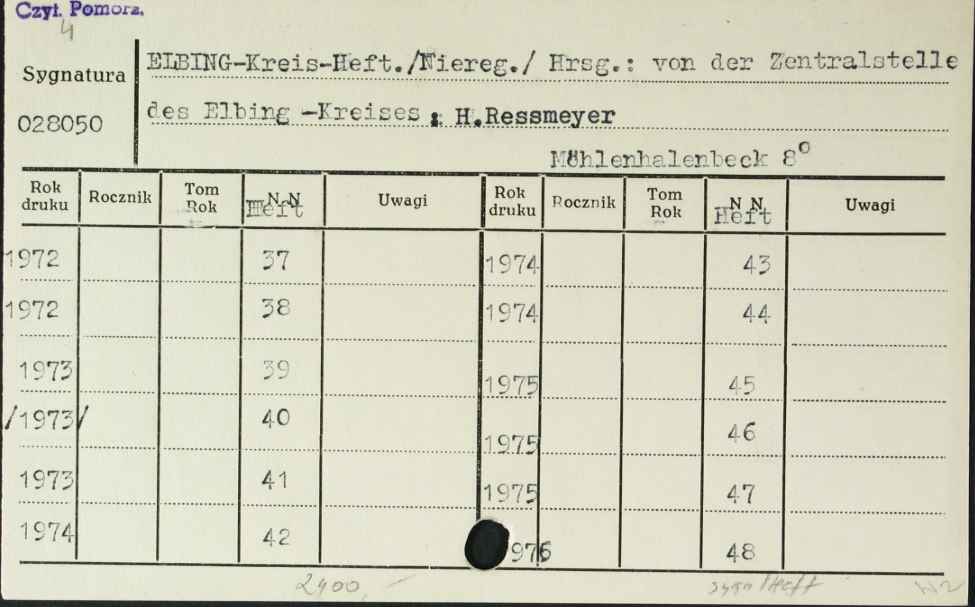 Czyt. Pomorz.
4
Sygnatura
028050
ELBING-Kreis-Heft./Niereg./ Hrsg.: von der Zentralstelle
des Elbing -Kreises : H.Ressmeyer
Mühlenhalenbeck 8°
Rok druku Rocznik Tom Rok N N Heft Uwagi Rok druku Rocznik Tom Rok N N Heft Uwagi
1972 37 1974 43
1972 38 1974 44
1973 39 1975 45
/1973/ 40 1975 46
1973 41 1975 47
1974 42 976 48
2400,-